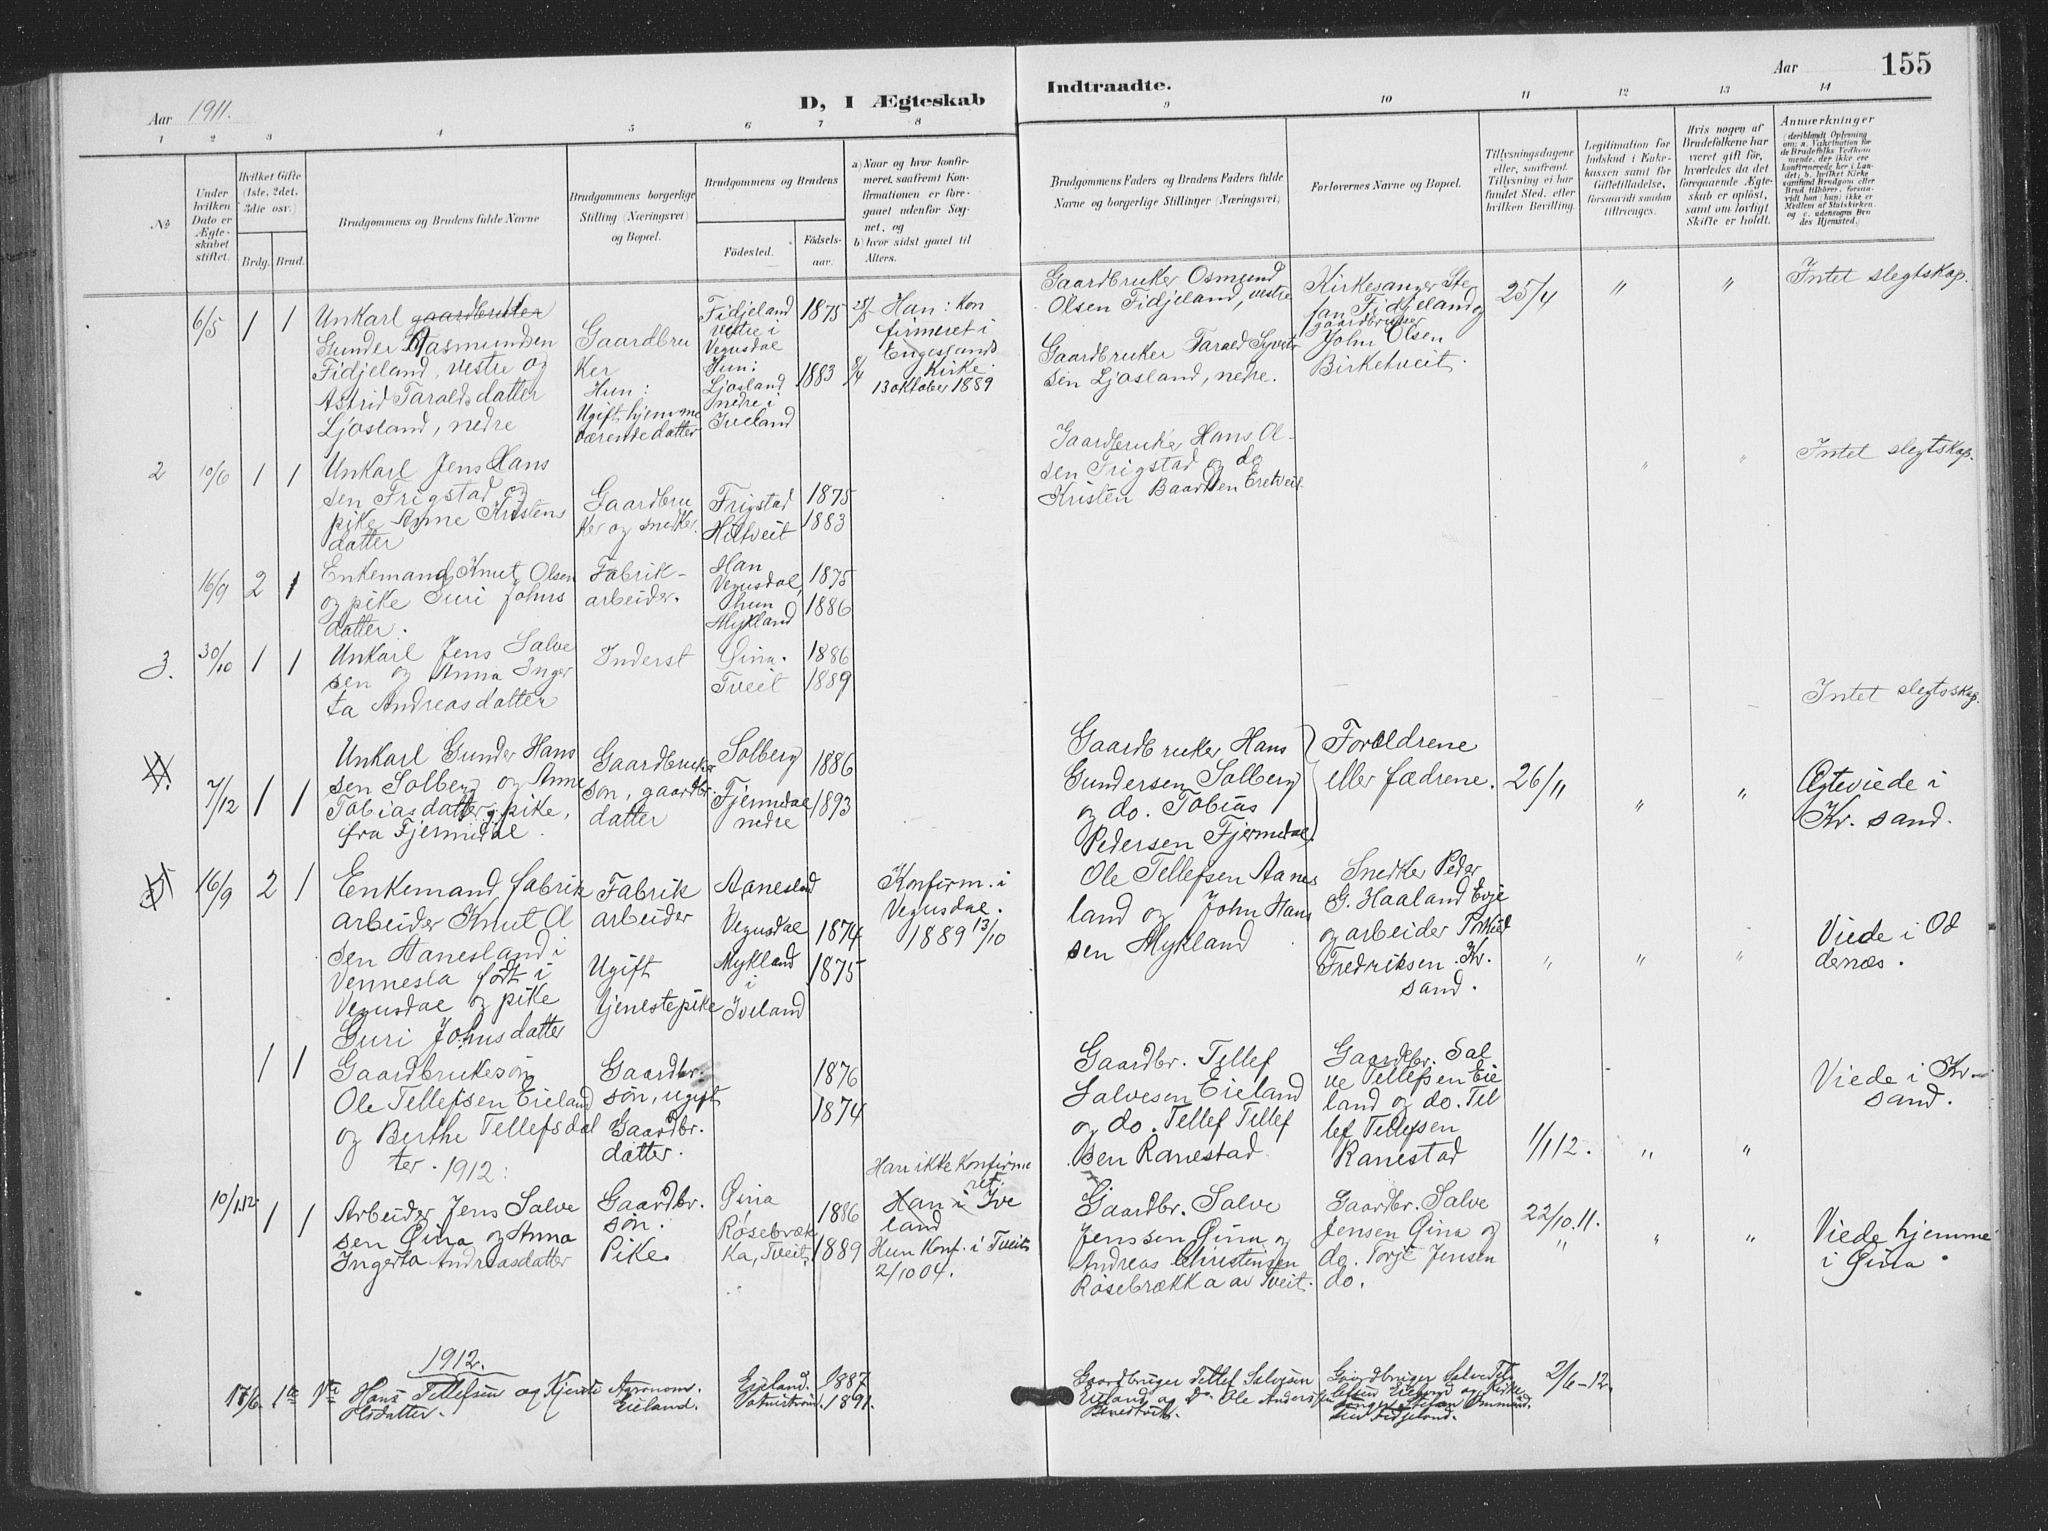 Aar 1911.
D, I Ægteskab
Indtraadte.
Aar
155
1 2 3 4 5 6 7 8 9 10 11 12 13 14
No
Under hvilken Dato er Ægteskabet stiftet.
Hvilket Gifte (1ste, 2det, 3die osv.)
Brdg. Brud.
Brudgommens og Brudens fulde Navne
Brudgommens borgerlige Stilling (Næringsvei) og Bopæl.
Brudgommens og Brudens
Fødested.
Fødselsaar.
a) Naar og hvor konfirmeret, saafremt Konfirmationen er foregaaet udenfor Sognet, og
b) hvor sidst gaaet til Alters.
Brudgommens Faders og Brudens Faders fulde Navne og borgerlige Stillinger (Næringsvei)
Forlovernes Navne og Bopæl.
Tillysningsdagene eller, saafremt Tillysning ei har fundet Sted, efter hvilken Bevilling.
Legitimation for Indskud i Enkekassen samt for Giftetilladelse, forsaavidt saadan tiltrænges.
Hvis nogen af Brudefolkene har været gift før, hvorledes da det foregaaende Ægteskab er opløst, samt om lovligt Skifte er holdt.
Anmærkninger
6/5 1 1
Unkarl gaardbruker
Gunder Aasmundsen
Fidjeland, vestre og
Astrid Taraldsdatter
Ljosland, nedre
Gaardbru
ker
Hun:
Ugift hjemme
værende datter
Fidjeland
vestre i
Vegusdal
Hun:
Ljosland
nedre i
Iveland
1875
1883
Han: Kon
firmeret i
Engeslands
Kirke
13 oktober 1889
Gaardbruker Osmund
Olsen Fidjeland, vestre
Gaardbruker Tarald Syverts
sen Ljosland, nedre.
Kirkesanger Ste
fan Fidjeland og
gaardbruker
John Olsen
Birketveit.
25/4 " "
Intet slegtskap.
2 10/6 1 1
Unkarl Jens Hans
sen Frigstad og
pike Anne Kristens
datter
Gaardbru
ker og snekker.
Frigstad
Hiltveit
1875
1883
Gaardbruker Hans Ol-
sen Frigstad og do
Kristen Baardsen Eretveit
" "
Intet slegtskap.
16/9 2 1
Enkemand Knut Olsen
og pike Guri Johns
datter.
Fabrik-
arbeider.
Han
Vegusdal,
hun
Mykland
1875
1886
3. 30/10 1 1
Unkarl Jens Salve
sen og Anna Inger
ta Andreasdatter
Inderst
Øina.
Tveit
1886
1889
Intet slegtsskap.
7/12 1 1
Unkarl Gunder Hans
sen Solberg og Anne
Tobiasdatter, pike,
fra Fjermedal.
Gaardbruker
søn, gaardbr.
datter
Solberg
Fjermedal
nedre
1886
1893
Gaardbruker Hans
Gundersen Solberg
og do. Tobias
Pedersen Fjermedal
Forældrene
eller fædrene.
26/11 " "
Ægteviede i
Kr. sand.
16/9 2 1
Enkemand fabrik
arbeider Knut Ol
sen Aanesland i
Vennesla født i
Vegusdal og pike
Guri Johnsdatter
Fabrik
arbeider
Ugift
tjenestepike
Aanesland
Vegusdal
Mykland
i
Iveland
1874
1875
Konfirm. i
Vegusdal.
1889 13/10
Ole Tellefsen Aanes
land og John Hans
sen Mykland
Snedker Peder
G. Haaland Evje
og arbeider Torkild
Fredriksen. Kr.
sand.
" " "
Viede i Od
dernæs.
1 1
Gaardbrukesøn
Ole Tellefsen Eieland
og Berthe Tellefsdat
ter. 1912:
Gaardbr.
søn, ugift
Gaardbr.
datter.
1876
1874
Gaardbr. Tellef
Salvesen Eieland
og do. Tellef Tellef
sen Ranestad
Gaardbr. Sal
ve Tellefsen Eie
land og do. Tel
lef Tellefsen
Ranestad
1/1 12. " "
Viede i Kr.
sand.
10/1.12 1 1
Arbeider Jens Salve
sen Øina og Anna
Ingerta Andreasdatter
Gaardbr.
søn.
Pike.
Øina
Røsebræk
ka, Tveit.
1886
1889
Han ikke Konfirme
ret.
Han i Ive
land
Hun Konf. i Tveit
2/10 04.
Gaardbr. Salve
Jenssen Øina og
Andreas Christensen
Røsebrækka av Tveit.
Gaardbr. Salve
Jensen Øina og
do. Torje Jensen
do.
22/10.11. " " "
Viede hjemme
i Øina.
1912.
17/6. 1te 1ste
Hans Tellefsen og Kjersti
Olsdatter.
Agronom.
Eieland.
Eieland.
1887
1891.
Gaardbruger Tellef Salvesen
Eieland og Do Ole Andersen
Gaardbruger Salve Tel
lefsen Eieland og Kirke
sanger Stefan Ommund
sen Fidjeland.
2/6-12.